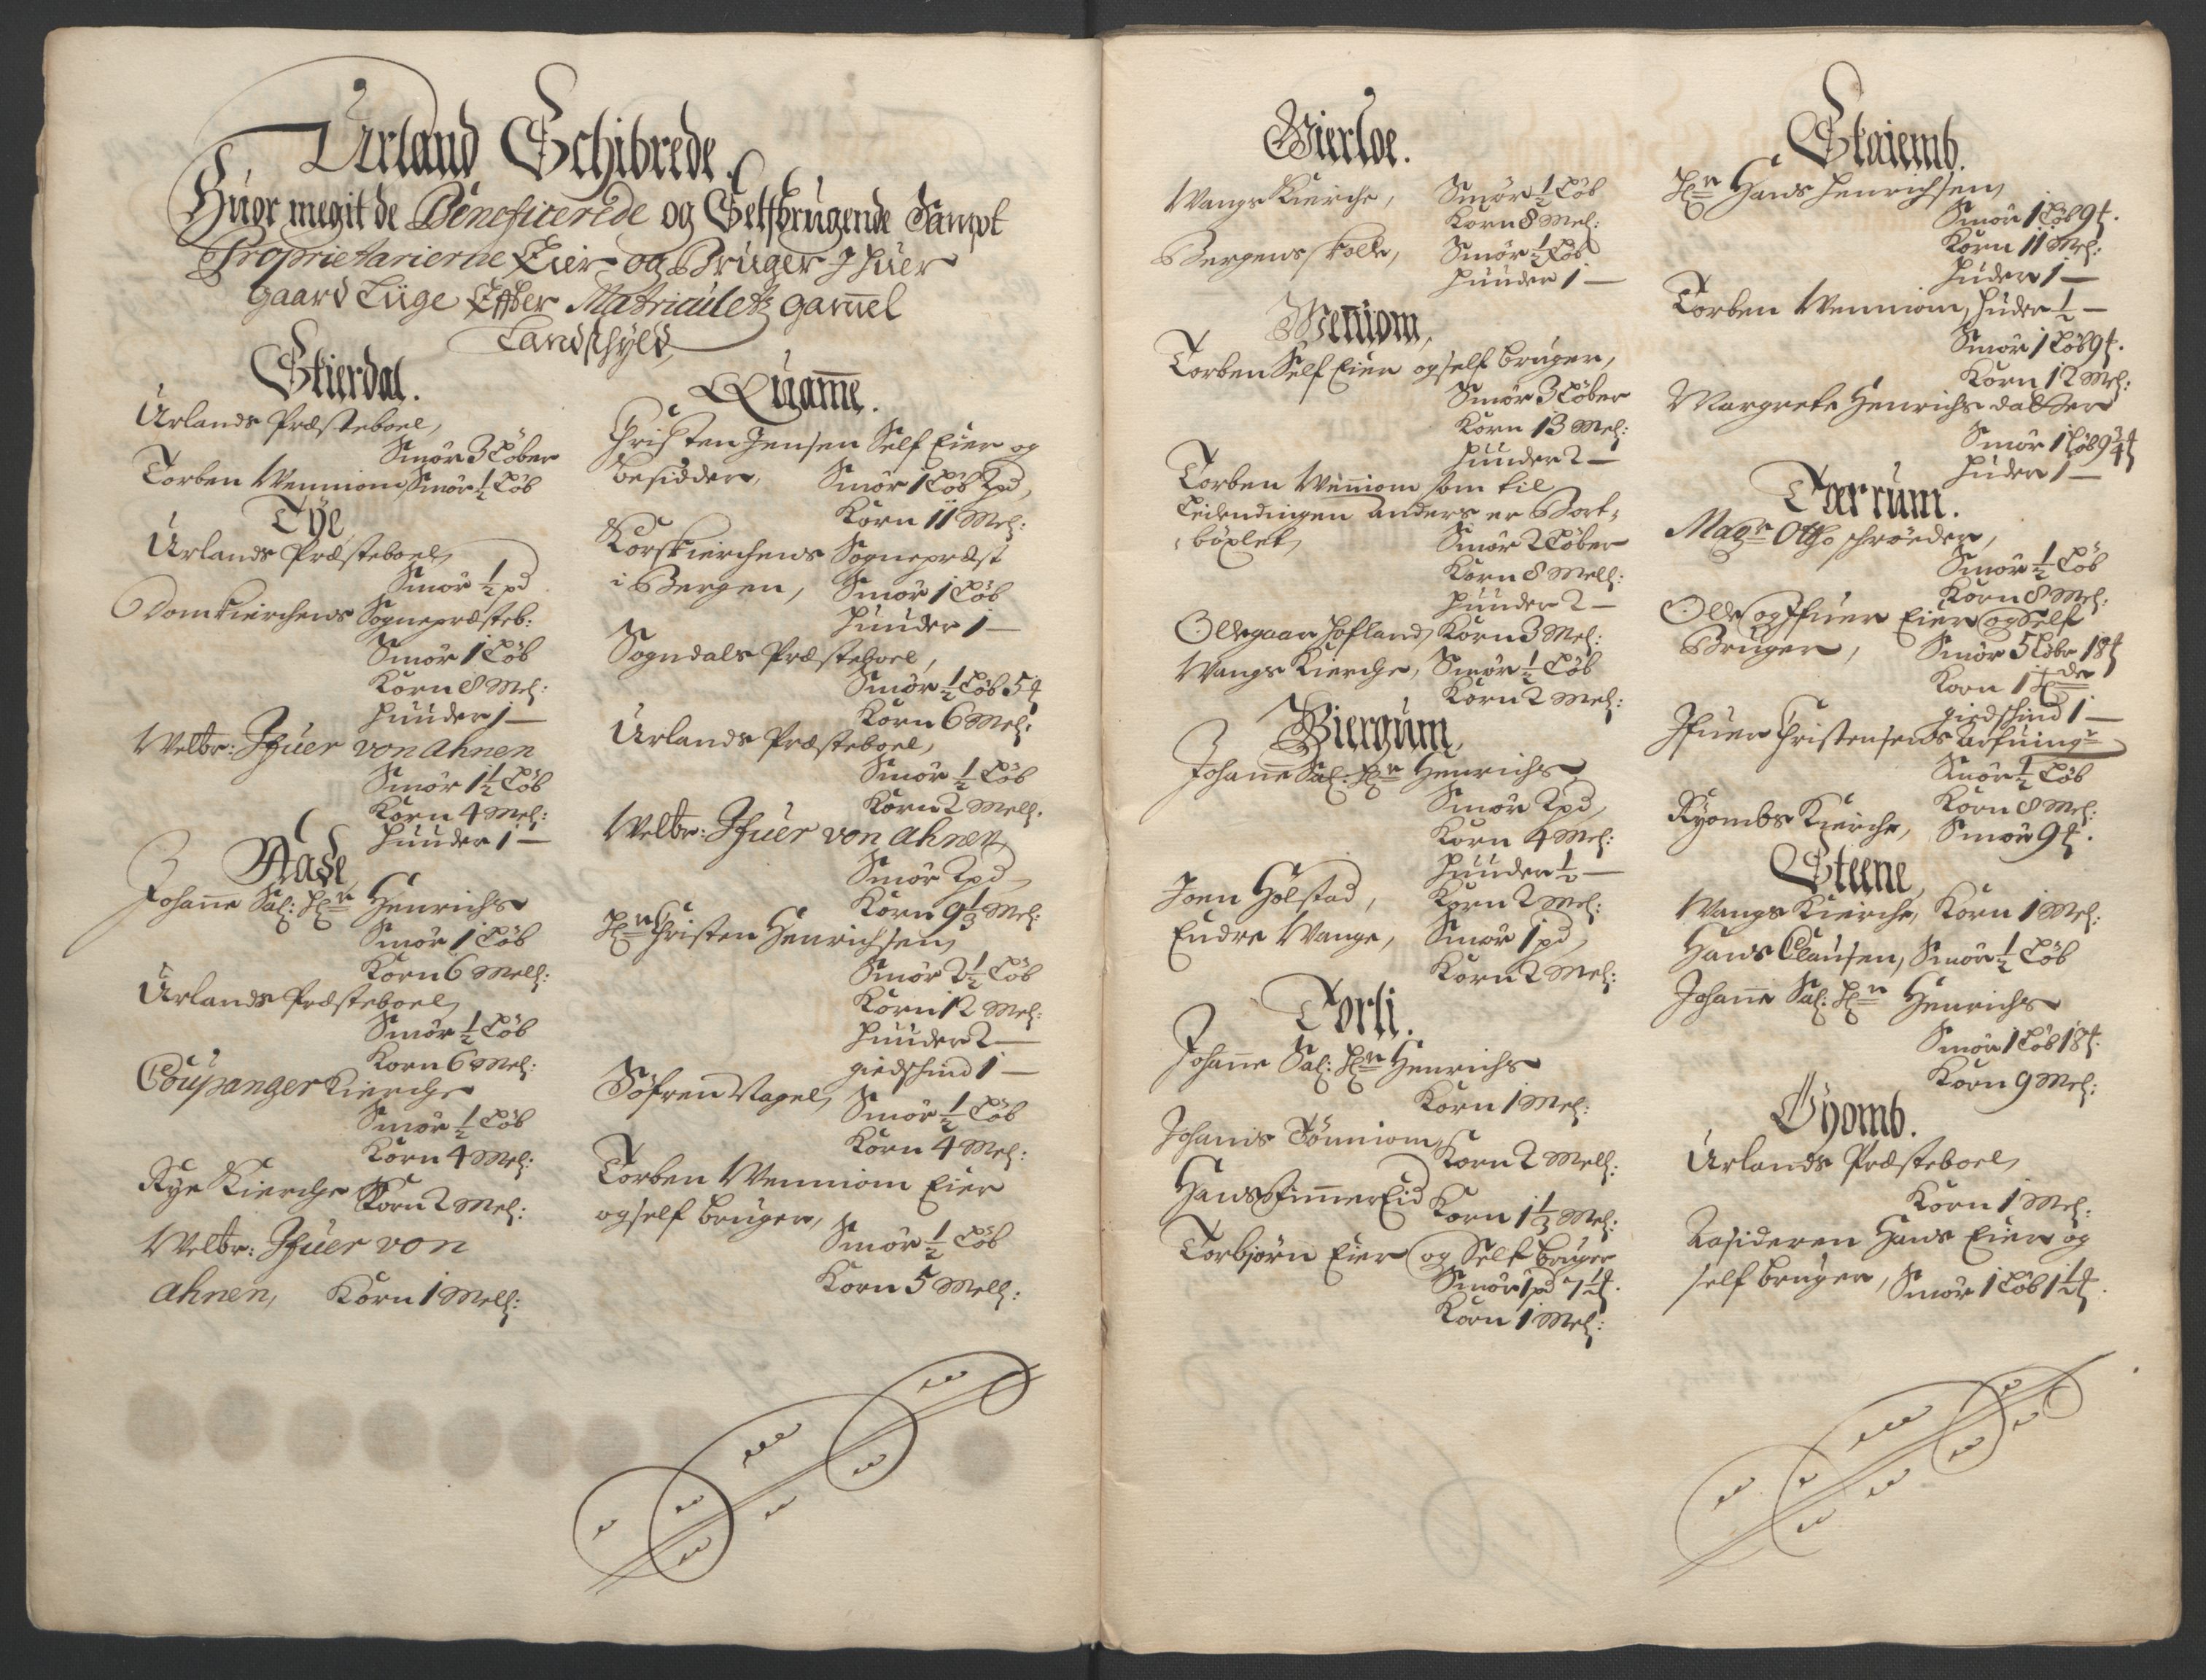 Urland Schibrede.
Huor megit de Beneficerede og Selfbrugende Sampt
Proprietarierne Eier og Bruger J huer
gaard Liige Effter Matriculets gam̄el
Landschyld,
Skierdal.
Urlands Præsteboel,
Smør 3 Løber
Torben Wenniom, Smør ½ Løb
Tÿe
Urlands Præsteboel,
Smør ½ pd
Domkierchens Sognepræsteb:
Smør 1 Løb
Korn 8 Mel:
Huuder 1 —
Welbr: Ifuer von Ahnen
Smør 1½ Løb
Korn 4 Mel:
Huuder 1 —
Aase
Johan̄e Sal: Hr Henrichs
Smør 1 Løb
Korn 6 Mell:
Urlands Præsteboel,
Smør ½ Løb
Korn 6 Mel:
Coupanger Kierche
Smør ½ Løb
Korn 4 Mel:
Rye Kierche Korn 2 Mel:
Welbr: Ifuer von
Ahnen, Korn 1 Mell:
Quam̄e.
Christen Jensen Self Eier og
besidder, Smør 1 Løb 2 pd,
Korn 11 Mel:
Korskierchens Sognepræst
i Bergen, Smør 1 Løb
Huuder 1 —
Sogndals Præsteboel,
Smør ½ Løb 5 ℔
Korn 6 Mel:
Urlands Præsteboel,
Smør ½ Løb
Korn 2 Mell.
Welbr: Ifuer von Ahnen
Smør 2 pd
Korn 9⅓ Mel:
Hr Christen Henrichsen,
Smør 2½ Løb
Korn 12 Mel:
Huuder 2 —
giedschind 1 —
Søfren Nagel, Smør ½ Løb
Korn 4 Mel:
Torben Wenniom Eier
og self bruger,
Smør ½ Løb
Korn 5 Mell:
Wierloe.
Wangs Kierche, Smør ½ Løb
Korn 8 Mel:
Bergens skolle, Smør ½ Løb
Huuder 1 —
Wen̄iom,
Torben Self Eier og self bruger,
Smør 3 Løber
Korn 13 Mel:
Huuder 2 —
Torben Wen̄iom som til
Leilendingen Anders er Bort-
bøxlet, Smør 2 Løber
Korn 8 Mell:
Huuder 2 —
Oldegaar Hofland, Korn 3 Mel:
Wangs Kierche, Smør ½ Løb
Korn 2 Mel:
Biergum,
Johan̄e Sal: Hr Henrichs
Smør 2 pd,
Korn 4 Mel:
Huuder ½ —
Joen Holstad, Korn 2 Mel:
Endre Wange, Smør 1 pd,
Korn 2 Mel:
Torli.
Johan̄e Sal: Hr Henrichs
Korn 1 Mel:
Johanis Tønniom,
Korn 2 Mell:
Hans Vim̄erEid Korn 1⅓ Mel:
Torbjørn Eier og Self bruger
Smør 1 pd 7½ ℔.
Korn 1 Mel:
Skaiemb.
Hr Hans Henrichsen,
Smør 1 Løb 9 ℔.
Korn 11 Mel:
Huder 1 —
Torben Wenniom, Huder ½ —
Smør 1 Løb 9 ℔.
Korn 12 Mel:
Margrete Henrichs datter
Smør 1 Løb 9¾ ℔
Huder 1 —
Tærrum.
Magr Otho schrøeder,
Smør ½ Løb
Korn 8 Mel:
Olle og Ifuer Eier og Self
Bruger, Smør 5 Løbr 18 ℔
Korn 1
giedschind 1 —
Ifuer Christensens Arfuingr
Smør ½ Løb
Korn 8 Mel:
Ryombs Kierche, Smør 9 ℔.
Steene,
Wangs Kierche, Korn 1 Mel:
Hans Clausen, Smør ½ Løb
Johan̄e Sal: Hr Henrichs
Smør 1 Løb 18 ℔.
Korn 9 Mel:
Øyomb.
Urlands Præsteboel,
Korn 1 Mel:
Hans Eier og
self bruger, Smør 1 Løb 1½ ℔.